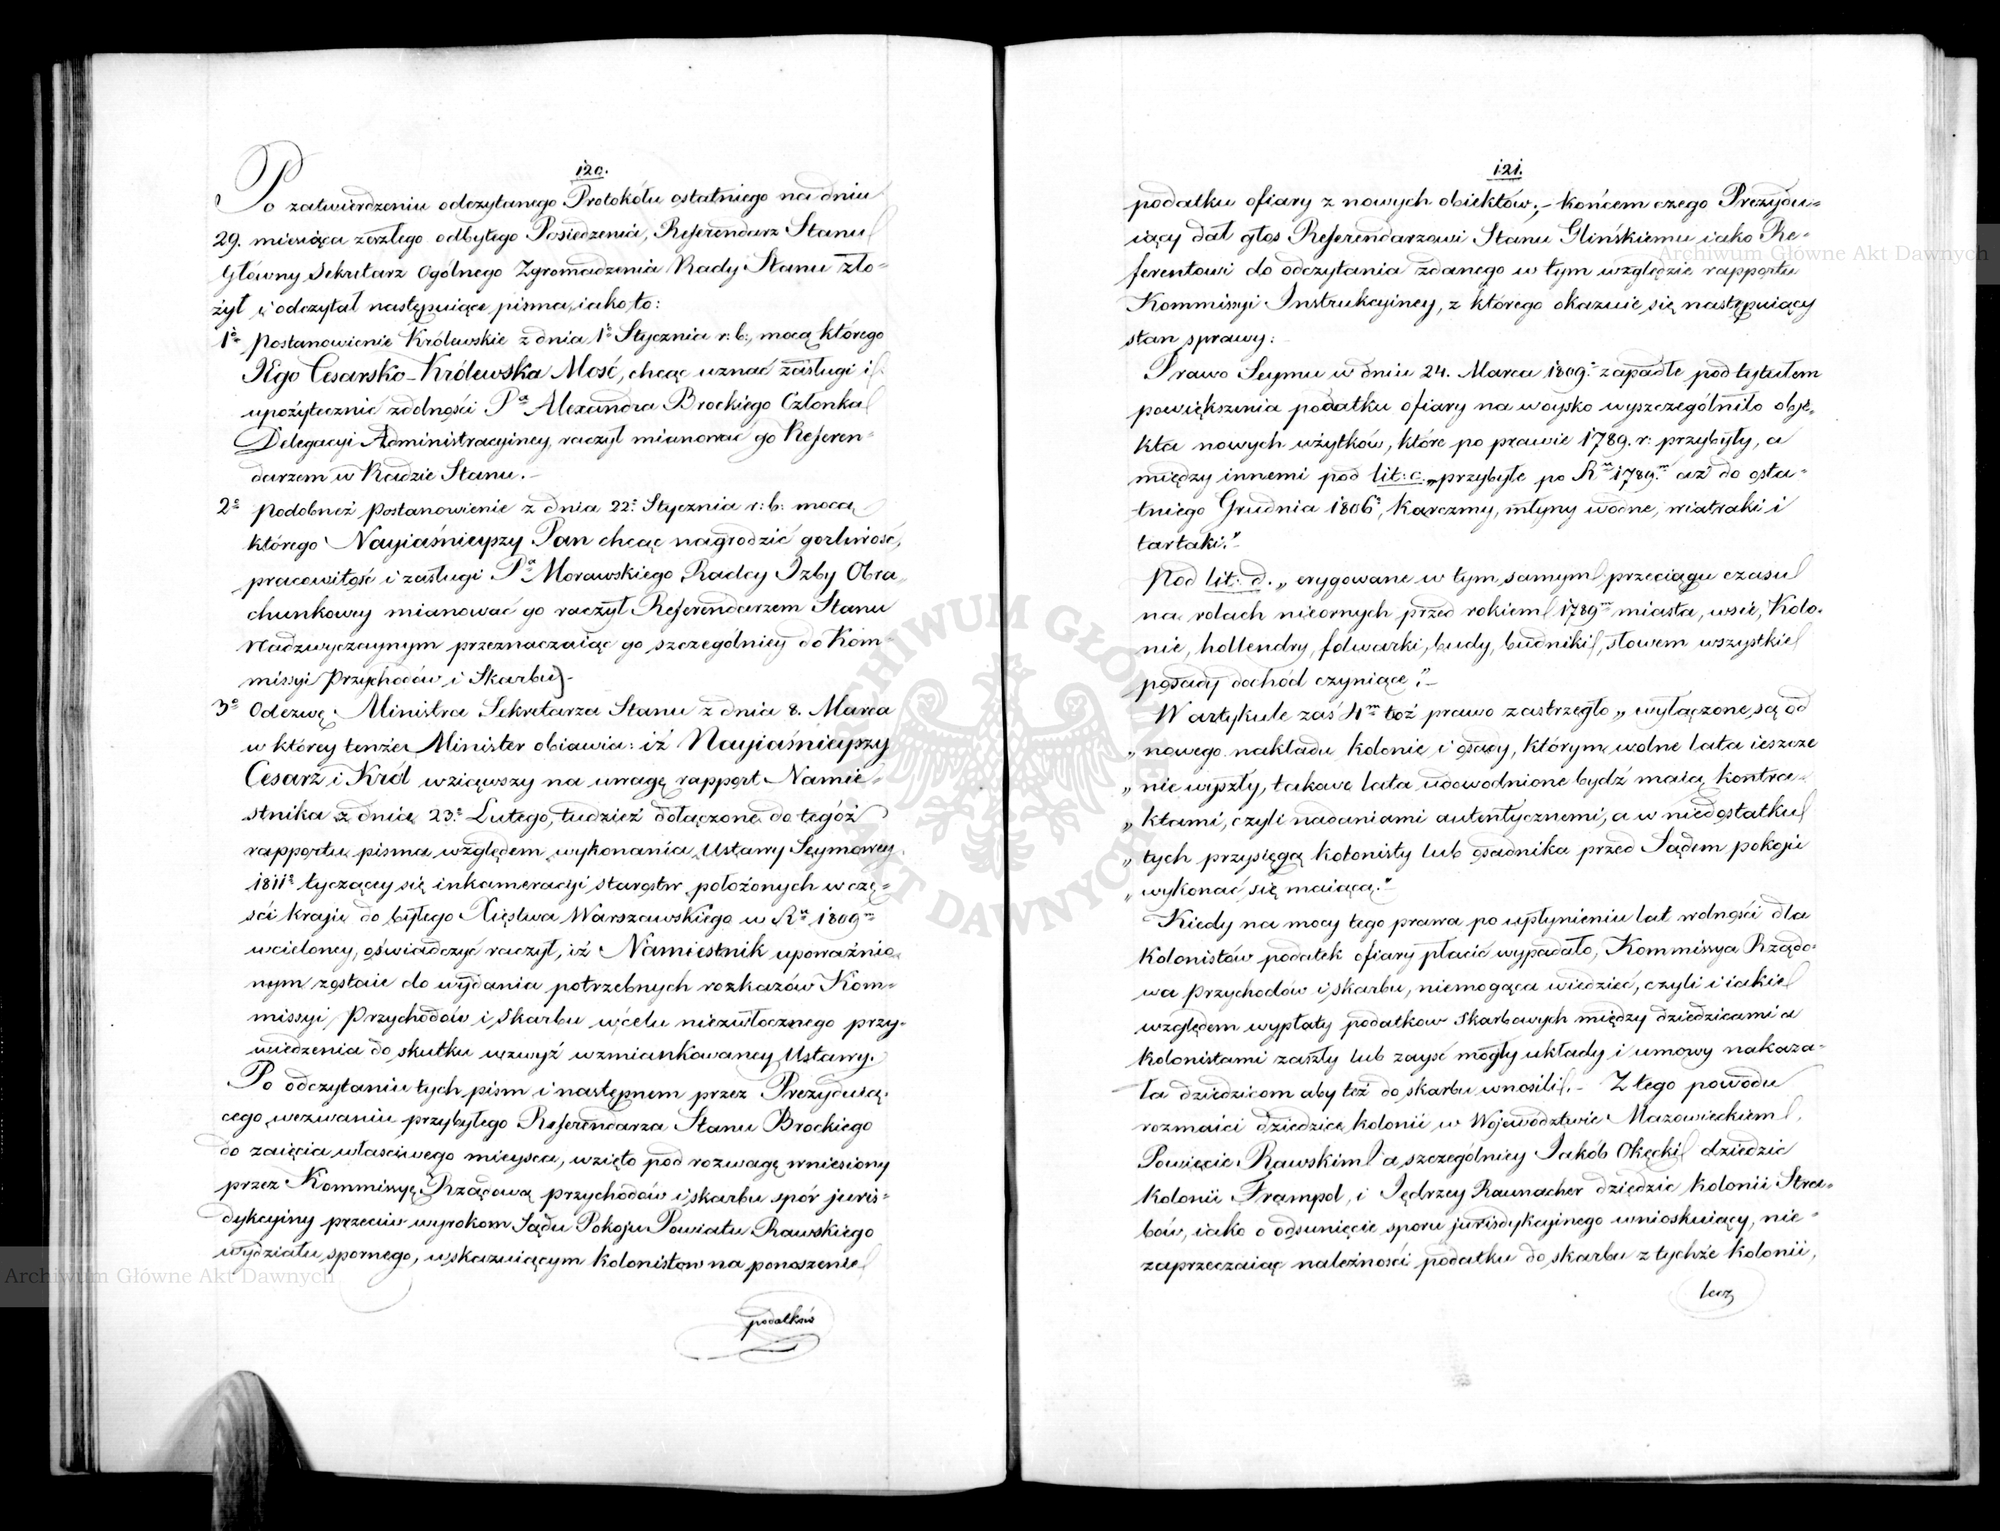 120.
Po zatwierdzeniu odczytanego Protokółu ostatniego na dniu
29. miesiąca zeszłego odbytego Posiedzenia, Referendarz Stanu
Główny Sekretarz Ogólnego Zgromadzenia Rady Stanu zło-
żył i odczytał następuiące pisma, iako to:
1o Postanowienie Królewskie z dnia 1o Stycznia r: b:, mocą którego
JEgo Cesarsko-Królewska Mość, chcąc uznać zasługi i
upożytecznić zdolności Pa Alexandra Brockiego Członka
Delegacyi Administracyiney, raczył mianować go Referen-
darzem w Radzie Stanu.-
2o Podobneż Postanowienie z dnia 22o Stycznia r: b: mocą
którego Nayiaśnieyszy Pan chcąc nagrodzić gorliwość,
pracowitość i zasługi Pa Morawskiego Radcy Izby Obra-
chunkowey mianować go raczył Referendarzem Stanu
Nadzwyczaynym przeznaczaiąc go szczególniey do Kom-
missyi Przychodów i Skarbu.-
3o Odezwę Ministra Sekretarza Stanu z dnia 8. Marca
w którey tenże Minister obiawia: iż Nayiaśnieyszy
Cesarz i Król wziąwszy na uwagę rapport Namie-
stnika z dnia 23o Lutego, tudzież dołączone do tegóż
rapportu pisma względem wykonania Ustawy Seymowey
1811o tyczącey się inkameracyi starostw położonych w czę-
ści kraiu do byłego Xięstwa Warszawskiego w Ru 1809m
wcieloney, oświadczyć raczył, iż Namiestnik upoważnio-
nym zostaie do wydania potrzebnych rozkazów Kom-
missyi Przychodów i Skarbu w celu niezwłocznego przy-
wiedzenia do skutku wzwyż wzmiankowaney Ustawy.
Po odczytaniu tych pism i następnem przez Prezyduią-
cego wezwaniu przybyłego Referendarza Stanu Brockiego
do zaięcia właściwego mieysca, wzięto pod rozwagę wniesiony
przez Kommissyę Rządową przychodów i skarbu spór juris-
dykcyiny przeciw wyrokom Sądu Pokoju Powiatu Rawskiego
wydziału spornego, wskazuiącym kolonistom na ponoszenie
podatków
121.
podatku ofiary z nowych obiektów;- końcem czego Prezydu-
iący dał głos Referendarzowi Stanu Glińskiemu iako Re-
ferentowi do odczytania zdanego w tym względzie rapportu
Kommissyi Instrukcyiney, z którego okazuie się następuiący
stan sprawy:
Prawo Seymu w dniu 24. Marca 1809o zapadłe pod tytułem
powiększenia podatku ofiary na woysko wyszczególniło obje-
kta nowych użytków, które po prawie 1789. r: przybyły, a
między innemi pod lit: c. „przybyłe po Ru 1789m aż do osta-
tniego Grudnia 1806o, Karczmy, młyny wodne, wiatraki i
tartaki."
Pod lit: d. „erygowane w tym samym przeciągu czasu
na rolach nieornych przed rokiem 1789m miasta, wsie, Kolo-
nie, hollendry, folwarki, budy, budniki, słowem wszystkie
posady dochód czyniące."-
W artykule zaś 4m toż prawo zastrzegło „wyłączone są od
„nowego nakładu kolonie i osady, którym wolne lata ieszcze
„nie wyszły, takowe lata udowodnione bydź maią kontra-
„ktami, czyli nadaniami autentycznemi, a w niedostatku
„tych przysięgą kolonisty lub osadnika przed Sądem pokoju
„wykonać się maiącą."-
Kiedy na mocy tego prawa po upłynieniu lat wolności dla
kolonistów podatek ofiary płacić wypadało, Kommissya Rządo-
wa Przychodów i skarbu, niemogąca wiedzieć, czyli i iakie
względem wypłaty podatkow Skarbowych między dziedzicami a
kolonistami zaszły lub zayść mogły układy i umowy nakaza-
ła dziedzicom aby też do skarbu wnosili.- Z tego powodu
rozmaici dziedzice kolonii w Województwie Mazowieckiem
Powiecie Rawskim a szczególniey Jakób Okęcki dziedzic
kolonii Frampol, i Jędrzey Raunacher dziedzic kolonii Stra-
bów, iako o odsunięcie sporu jurisdykcyinego wnioskuiący, nie-
zaprzeczaiąc należności podatku do skarbu z tychże kolonii,
lecz
ARCHIWUM GŁÓWNE AKT DAWNYCH
Archiwum Główne Akt Dawnych
Archiwum Główne Akt Dawnych